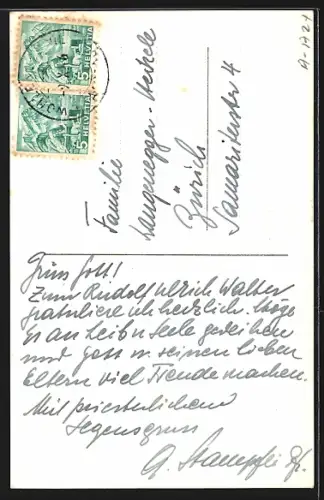 A-1721
HELVETIA 5
HELVETIA 5
Familie
Langenegger-Heckele
Zürich
Samariterstr 4
Grüss Gott!
Zum Rudolf Ulrich Walter
gratuliere ich herzlich. Möge
Er an Leib u Seele gedeihen
und Gott u. seinen lieben
Eltern viel Freude machen.
Mit priesterlichem
Segensgruss
G. Stampfli Pf.